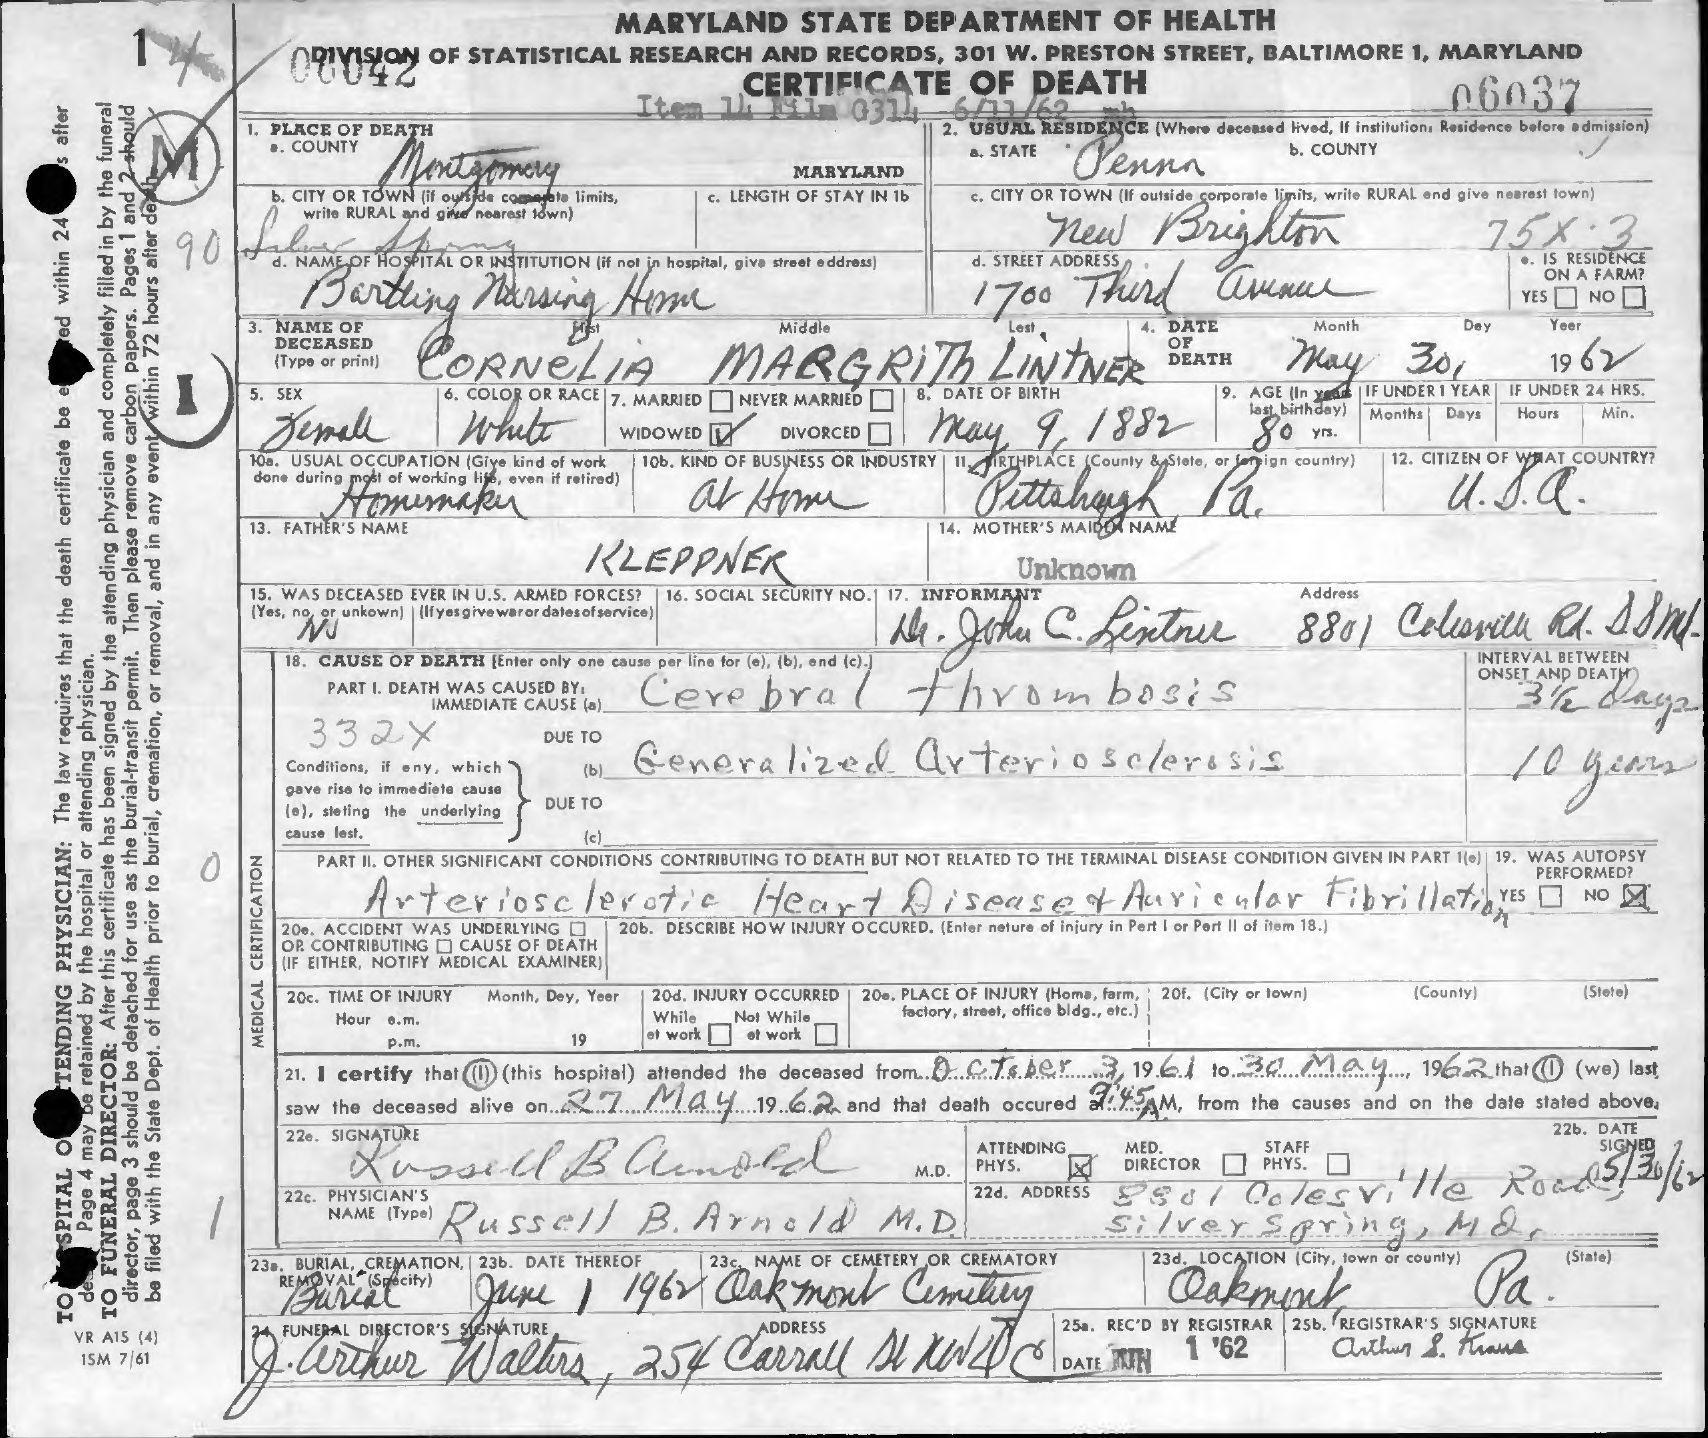 MARYLAND STATE DEPARTMENT OF HEALTH
DIVISION OF STATISTICAL RESEARCH AND RECORDS, 301 W. PRESTON STREET, BALTIMORE 1, MARYLAND
06042
CERTIFICATE OF DEATH
06037
Item 14 Film G314 6/11/62 mb
1
M
90
I
0
1
1. PLACE OF DEATH
a. COUNTY
Montgomery
MARYLAND
b. CITY OR TOWN (if outside corporate limits, write RURAL and give nearest town)
Silver Spring
c. LENGTH OF STAY IN 1b
d. NAME OF HOSPITAL OR INSTITUTION (if not in hospital, give street address)
Bartling Nursing Home
2. USUAL RESIDENCE (Where deceased lived, If institution: Residence before admission)
a. STATE Penna b. COUNTY
c. CITY OR TOWN (If outside corporate limits, write RURAL and give nearest town)
New Brighton 75X-3
d. STREET ADDRESS
1700 Third Avenue
e. IS RESIDENCE ON A FARM?
YES NO
3. NAME OF DECEASED (Type or print)
First Middle Last
CORNELIA MARGRITH LINTNER
4. DATE OF DEATH
Month Day Year
May 30, 1962
5. SEX
Female
6. COLOR OR RACE
White
7. MARRIED NEVER MARRIED
WIDOWED DIVORCED
8. DATE OF BIRTH
May 9, 1882
9. AGE (In years last birthday)
80 yrs.
IF UNDER 1 YEAR
Months Days
IF UNDER 24 HRS.
Hours Min.
10a. USUAL OCCUPATION (Give kind of work done during most of working life, even if retired)
Homemaker
10b. KIND OF BUSINESS OR INDUSTRY
at Home
11. BIRTHPLACE (County & State, or foreign country)
Pittsburgh, Pa.
12. CITIZEN OF WHAT COUNTRY?
U.S.A.
13. FATHER'S NAME
KLEPPNER
14. MOTHER'S MAIDEN NAME
Unknown
15. WAS DECEASED EVER IN U.S. ARMED FORCES?
(Yes, no, or unkown) (If yes give war or dates of service)
No
16. SOCIAL SECURITY NO.
17. INFORMANT Address
Dr. John C. Lintner 8801 Colesville Rd. S S Md.
MEDICAL CERTIFICATION
18. CAUSE OF DEATH [Enter only one cause per line for (a), (b), and (c).]
INTERVAL BETWEEN ONSET AND DEATH
PART I. DEATH WAS CAUSED BY:
IMMEDIATE CAUSE (a) Cerebral thrombosis 3½ Days
332X
DUE TO
(b) Generalized Arteriosclerosis 10 years
Conditions, if any, which gave rise to immediate cause (a), stating the underlying cause last.
DUE TO
(c)
PART II. OTHER SIGNIFICANT CONDITIONS CONTRIBUTING TO DEATH BUT NOT RELATED TO THE TERMINAL DISEASE CONDITION GIVEN IN PART 1(a)
Arteriosclerotic Heart Disease & Auricular Fibrillation
19. WAS AUTOPSY PERFORMED?
YES NO
20a. ACCIDENT WAS UNDERLYING
OR CONTRIBUTING CAUSE OF DEATH
(IF EITHER, NOTIFY MEDICAL EXAMINER)
20b. DESCRIBE HOW INJURY OCCURED. (Enter nature of injury in Part I or Part II of item 18.)
20c. TIME OF INJURY Month, Day, Year
Hour a.m.
p.m. 19
20d. INJURY OCCURRED
While at work Not While at work
20e. PLACE OF INJURY (Home, farm, factory, street, office bldg., etc.)
20f. (City or town) (County) (State)
21. I certify that (I) (this hospital) attended the deceased from October 3, 1961 to 30 May, 1962 that (I) (we) last
saw the deceased alive on 27 May 1962 and that death occured at 9:45 AM, from the causes and on the date stated above.
22a. SIGNATURE
Russell B Arnold M.D.
ATTENDING PHYS. MED. DIRECTOR STAFF PHYS.
22b. DATE SIGNED
5/30/62
22c. PHYSICIAN'S NAME (Type)
Russell B. Arnold M.D.
22d. ADDRESS 8801 Colesville Road,
Silver Spring, Md.
23a. BURIAL, CREMATION, REMOVAL (Specify)
Burial
23b. DATE THEREOF
June 1 1962
23c. NAME OF CEMETERY OR CREMATORY
Oakmont Cemetery
23d. LOCATION (City, town or county) (State)
Oakmont, Pa.
24. FUNERAL DIRECTOR'S SIGNATURE ADDRESS
J. Arthur Walters, 254 Carroll St NW DC
25a. REC'D BY REGISTRAR
DATE JUN 1 '62
25b. REGISTRAR'S SIGNATURE
Arthur S. Kraus
TO HOSPITAL OR ATTENDING PHYSICIAN: The law requires that the death certificate be executed within 24 hours after
death. Page 4 may be retained by the hospital or attending physician.
TO FUNERAL DIRECTOR: After this certificate has been signed by the attending physician and completely filled in by the funeral
director, page 3 should be detached for use as the burial-transit permit. Then please remove carbon papers. Pages 1 and 2 should
be filed with the State Dept. of Health prior to burial, cremation, or removal, and in any event within 72 hours after death.
VR A15 (4)
15M 7/61